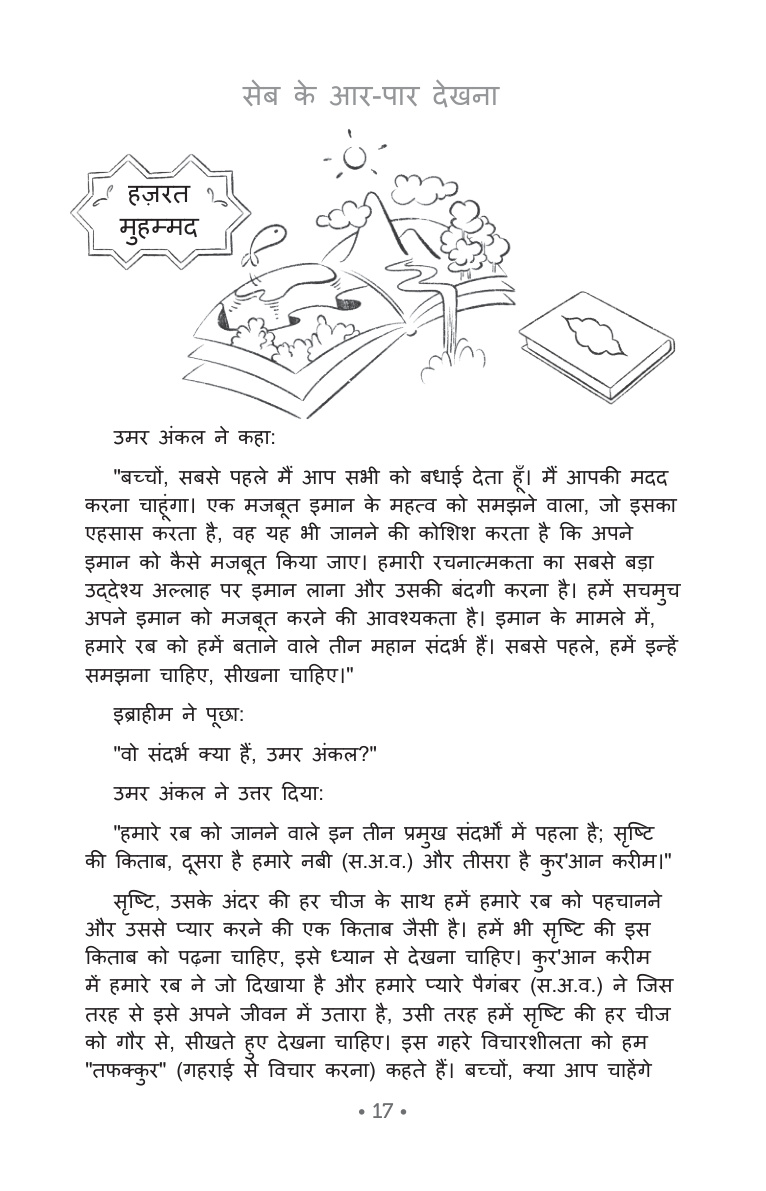 सेब के आर-पार देखना
हज़रत
मुहम्मद
उमर अंकल ने कहा:
"बच्चों, सबसे पहले मैं आप सभी को बधाई देता हूँ। मैं आपकी मदद
करना चाहूंगा। एक मजबूत इमान के महत्व को समझने वाला, जो इसका
एहसास करता है, वह यह भी जानने की कोशिश करता है कि अपने
इमान को कैसे मजबूत किया जाए। हमारी रचनात्मकता का सबसे बड़ा
उद्देश्य अल्लाह पर इमान लाना और उसकी बंदगी करना है। हमें सचमुच
अपने इमान को मजबूत करने की आवश्यकता है। इमान के मामले में,
हमारे रब को हमें बताने वाले तीन महान संदर्भ हैं। सबसे पहले, हमें इन्हें
समझना चाहिए, सीखना चाहिए।"
इब्राहीम ने पूछा:
"वो संदर्भ क्या हैं, उमर अंकल?"
उमर अंकल ने उत्तर दिया:
"हमारे रब को जानने वाले इन तीन प्रमुख संदर्भों में पहला है; सृष्टि
की किताब, दूसरा है हमारे नबी (स.अ.व.) और तीसरा है कुर'आन करीम।"
सृष्टि, उसके अंदर की हर चीज के साथ हमें हमारे रब को पहचानने
और उससे प्यार करने की एक किताब जैसी है। हमें भी सृष्टि की इस
किताब को पढ़ना चाहिए, इसे ध्यान से देखना चाहिए। कुर'आन करीम
में हमारे रब ने जो दिखाया है और हमारे प्यारे पैगंबर (स.अ.व.) ने जिस
तरह से इसे अपने जीवन में उतारा है, उसी तरह हमें सृष्टि की हर चीज
को गौर से, सीखते हुए देखना चाहिए। इस गहरे विचारशीलता को हम
"तफक्कुर" (गहराई से विचार करना) कहते हैं। बच्चों, क्या आप चाहेंगे
• 17 •